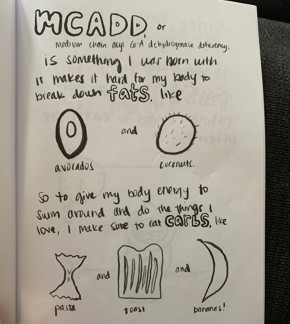 MCADD, or
medium chain acyl co-A dehydrogenase deficiency,
is something I was born with.
it makes it hard for my body to
break down fats, like
and
avocados
coconuts.
So to give my body energy to
swim around and do the things I
love, I make sure to eat carbs, like
and
and
pasta
toast
bananas!